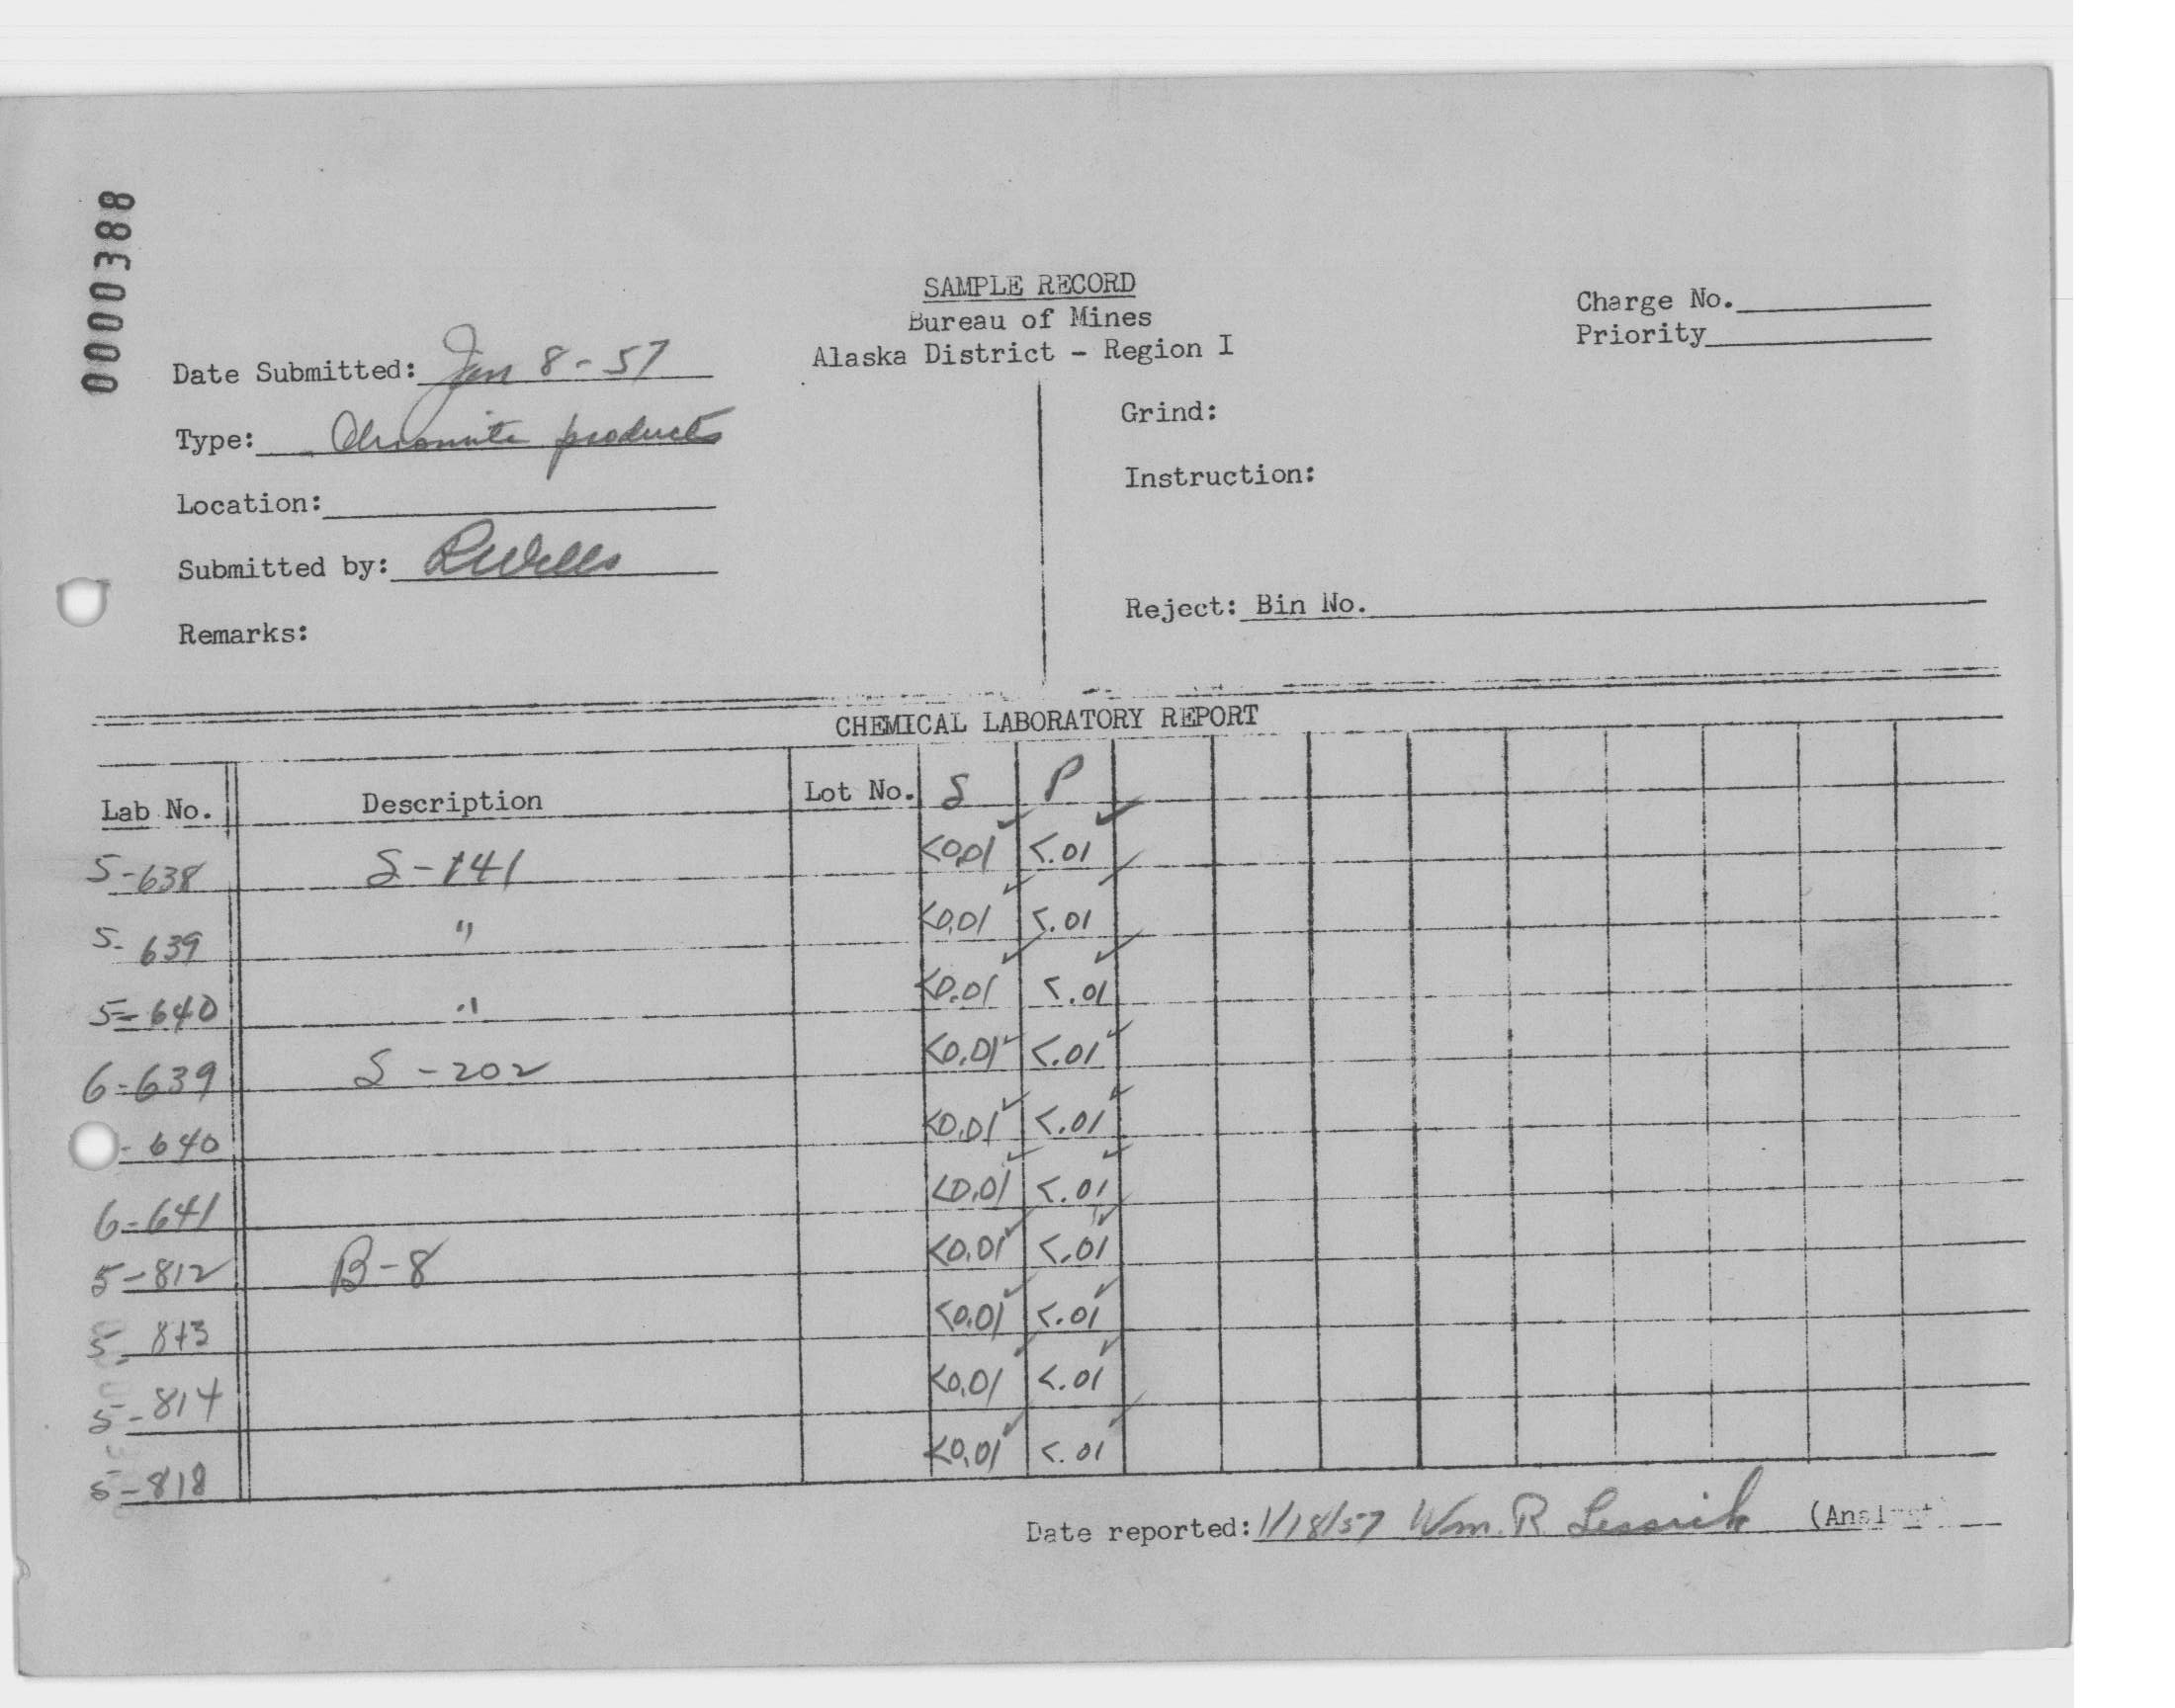 0000388
SAMPLE RECORD
Bureau of Mines
Alaska District - Region I
Charge No.
Priority
Date Submitted: Jan 8-57
Type: Chromite products
Location:
Submitted by: RWells
Remarks:
Grind:
Instruction:
Reject: Bin No.
CHEMICAL LABORATORY REPORT
Lab No. Description Lot No. S P
5-638 S-141 <0.01 <.01
5-639 " <0.01 <.01
5-640 " <0.01 <.01
6-639 S-202 <0.01 <.01
-640 <0.01 <.01
6-641 <0.01 <.01
5-812 B-8 <0.01 <.01
5-813 <0.01 <.01
5-814 <0.01 <.01
5-818 <0.01 <.01
Date reported: 1/18/57 Wm. R (Analyst